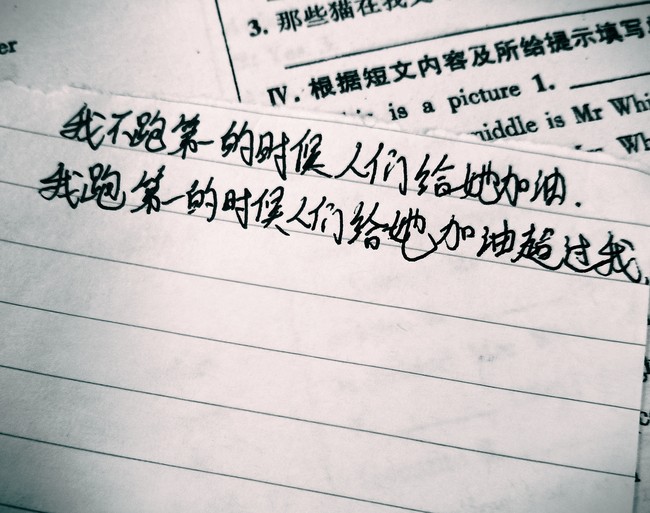 er
3. 那些猫在我
IV. 根据短文内容及所给提示填写
is is a picture 1.
middle is Mr Whi
Wh
我不跑第一的时候人们给她加油.
我跑第一的时候人们给她加油超过我